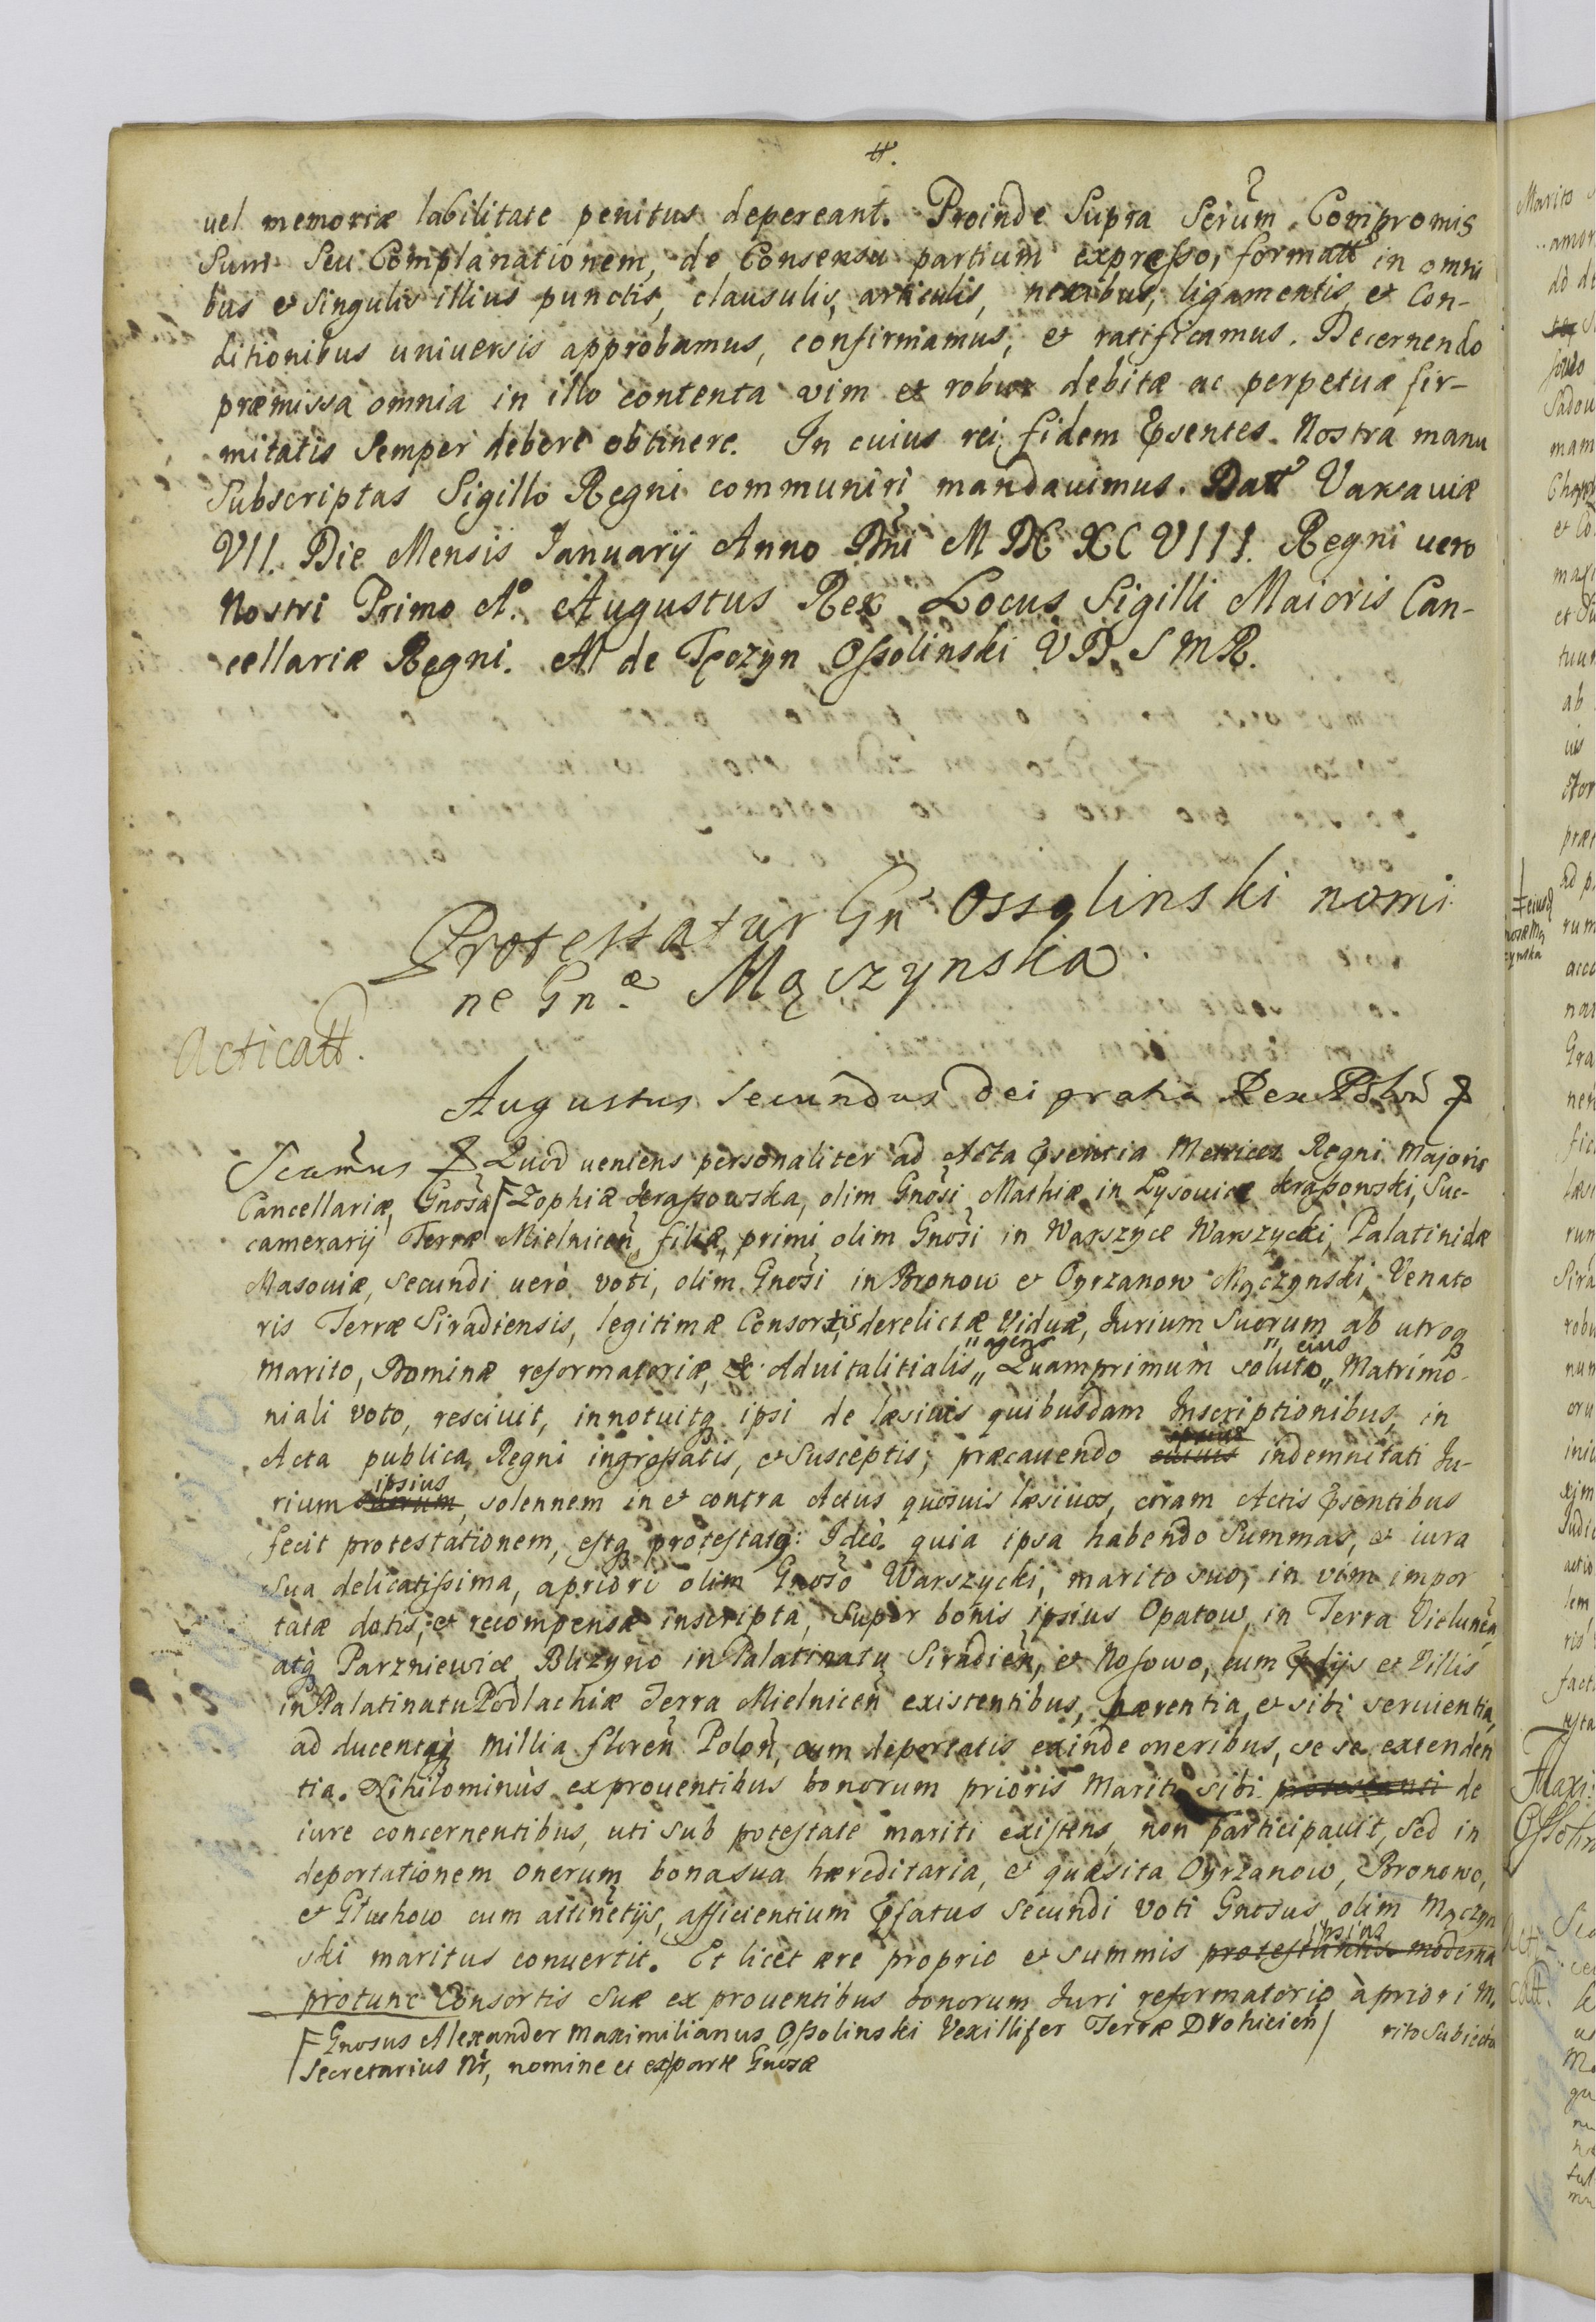 tt.
uel memoriæ labilitate penitus depereant. Proinde Supra Scrum Compromis
Sum Seu Complanationem, de Consensu partium expresso, formatt in omni
bus et singulis illius punctis, clausulis, articulis, nexibus, ligamentis et Con-
ditionibus uniuersis approbamus, confirmamus, et ratificamus. Decernendo
præmissa omnia in illo contenta vim et robur debitæ ac perpetuæ fir-
mitatis Semper debere obtinere. In cuius rei fidem Pntes. Nostra manu
Subscriptas Sigillo Regni communiri mandauimus. Datt Varsauiæ
VII. Die Mensis Ianuarij Anno Dni M DC XC VIII. Regni uero
Nostri Primo Ao. Augustus Rex Locus Sigilli Maioris Can-
cellariæ Regni. M de Tęczyn Ossolinski V D. S M R.
Protestatur Gn Ossolinski nomi
ne Gnæ Mączynska.
Acticatt.
Augustus Secundus Dei gratia Rex Polon
Scamus Quod ueniens personaliter ad Acta psentia Metrices Regni Majoris
Cancellariæ, Gnosa Zophiæ Krassowska, olim Gnosi Mathiæ in Lysouice Krassowski, Suc-
camerarij Terræ Mielnicen filiæ, primi olim Gnosi in Warszyce Warszycki, Palatinidæ
Masouiæ, Secundi uero voti, olim Gnosi in Bronow et Oyrzanow Mączynski, Venato
ris Terræ Siradiensis, legitimæ Consortis derelictæ Viduæ, Iurium Suorum ab utroq
agens eius
marito, Nominæ reformatoriæ, & Aduitalitialis „ Quamprimum soluto „ Matrimo-
niali voto, resciuit, innotuitq ipsi de læsiuis quibusdam Inscriptionibus, in
ipsius
Acta publica Regni ingrossatis, et Susceptis; præcauendo cuiuis indemnitati Iu-
ipsius
rium suorum, solennem in et contra Actus quosuis læsiuos, coram Actis psentibus
fecit protestationem, estq protestatq: Ideo. quia ipsa habendo Summas, et iura
sua delicatissima, a priori olim Gnoso Warszycki, marito suo, in vim impor
tatæ dotis, et recompensæ inscripta, Super bonis ipsius Opatow, in Terra Vielunen,
atq Parzniewice, Blizyno in Palatinatu Siradien, et Nosowo, cum pdijs et Villis
in Palatinatu Podlachiæ Terra Mielnicen existentibus, hærentia, et sibi seruientia,
ad ducentaq millia floren Polon, cum deportatis exinde oneribus, se se extenden
tia. Nihilominus ex prouentibus bonorum prioris Mariti sibi protestanti de
iure concernentibus, uti sub potestate mariti existens, non participauit, sed in
deportationem onerum bona sua hæreditaria, et quæsita Oyrzanow, Bronowo,
et Gluchow cum attinetijs, afficientium pfatus Secundi Voti Gnosus olim Mączyn
ipsius
ski maritus conuertit. Et licet ære proprio et summis protestantis moderna
protunc Consortis Suæ ex prouentibus bonorum Iuri reformatorio à priori M.
rito Subiecto
Gnosus Alexander Maximilianus Ossolinski Vexillifer Terræ Drohicien
Secretarius Nr, nomine et ex parte Gnosæ